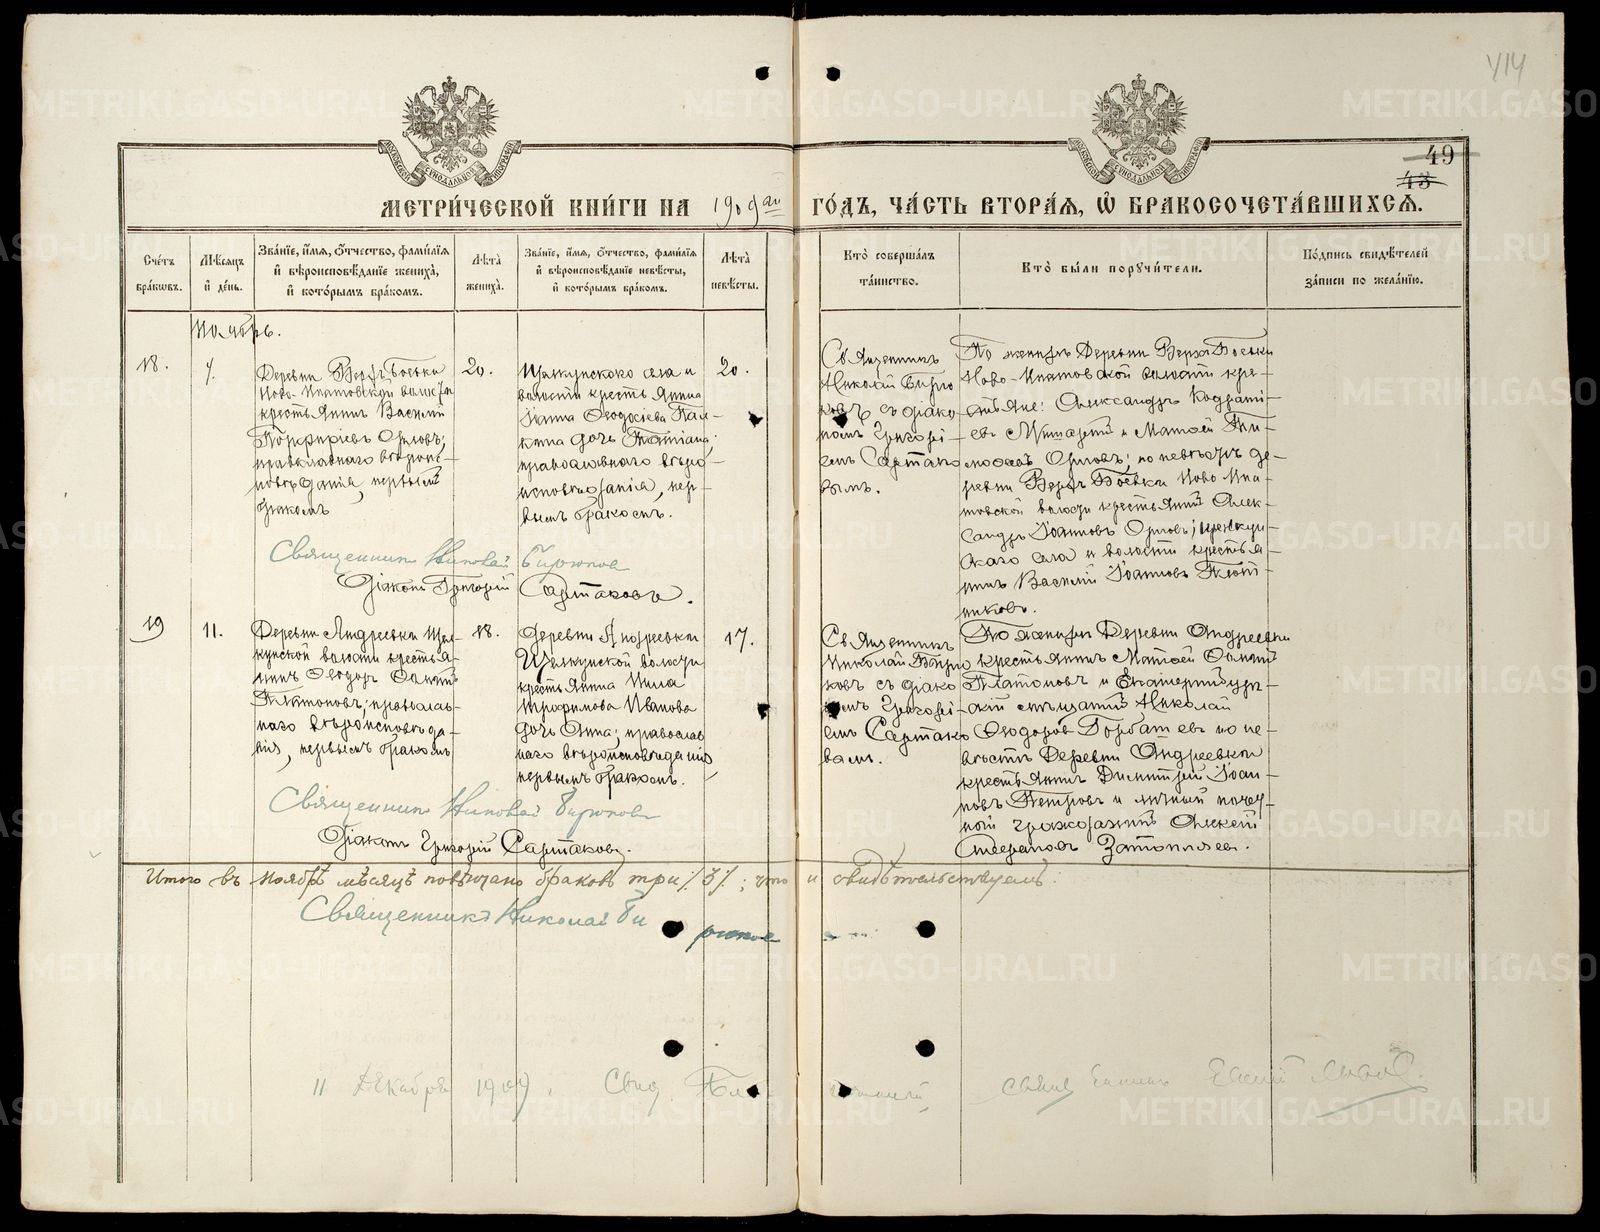 414
49
43
МЕТРИ́ЧЕСКОЙ КНИ́ГИ НА 1909ый ГО́ДЪ, ЧА́СТЬ ВТОРА́Я, Ѡ҆ БРАКОСОЧЕТА́ВШИХСѦ.
Сче́тъ бра́кѡвъ.
Мѣ́сѧцъ и҆ де́нь.
Зва́нїе, и҆́мѧ, ѻ҆́тчество, фами́лїѧ и҆ вѣроисповѣ́данїе жениха̀, и҆ кото́рымъ бра́комъ.
Лѣ́та жениха̀.
Зва́нїе, и҆́мѧ, ѻ҆́тчество, фами́лїѧ и҆ вѣроисповѣ́данїе невѣ́сты, и҆ кото́рымъ бра́комъ.
Лѣ́та невѣ́сты.
Кто̀ соверша́лъ та́инство.
Кто̀ бы́ли порꙋчи́тели.
По́дпись свидѣ́телей за́писи по жела́нїю.
Ноябрь.
18.
Деревни Верхъ Боевки
Ново-Ипатовской волости
крестьянинъ Василий
Порфиріевъ Орловъ;
православнаго вѣроис-
повѣданія, первымъ
бракомъ
20.
Щелкунскаго села и
волости крестьянина
Ѳеодосіева
дочь Татіана;
православнаго вѣро-
исповѣданія, пер-
вымъ бракомъ.
20.
Священникъ
Николай Бирю
ковъ съ діако
номъ Григорі-
емъ Сартако
вымъ.
По женихѣ Деревни Верхъ Боевки
Ново-Ипатовской волости кре-
стьяне: Александръ
и Матѳей Ти-
моѳеевъ Орловъ; по невѣстѣ де-
ревни Верхъ Боевки Ново-Ипа-
товской волости крестьянинъ Алек-
сандръ Іоанновъ Орловъ; Щелкун-
скаго села и волости крестья-
нинъ Василій Іоанновъ Плот-
никовъ.
Священникъ Николай Бирюков
Діаконъ Григорій Сартаковъ.
19
11.
Деревни Андреевки Щел-
кунской волости крестья-
нинъ Ѳеодоръ
Платоновъ; православ-
наго вѣроисповѣда-
нія, первымъ бракомъ
18.
Деревни Андреевки
Щелкунской волости
крестьянина Нила
Трофимова Иванова
дочь Анна; православ
наго вѣроисповѣданія
первымъ бракомъ.
17.
Священникъ
Николай Бирю
ковъ съ діако
номъ Григорі-
емъ Сартако
вымъ.
По женихѣ Деревни Андреевки
крестьянинъ Матѳей
Платоновъ и Екатеринбург-
скій мѣщанинъ Николай
Ѳеодоровъ Горбатевъ по не-
вѣстѣ Деревни Андреевки
крестьянинъ Димитрій Іоан-
новъ Петровъ и личный почет-
ный гражданинъ Алексій
Стефановъ Затопляевъ.
Священникъ Николай Бирюков
Діаконъ Григорій Сартаковъ.
Итого въ Ноябрѣ мѣсяцѣ повѣнчано браковъ три /3/; что и свидѣтельствуемъ:
Священникъ Николай Бирюков
11 Декабря 1909.
METRIKI.GASO-URAL.RU